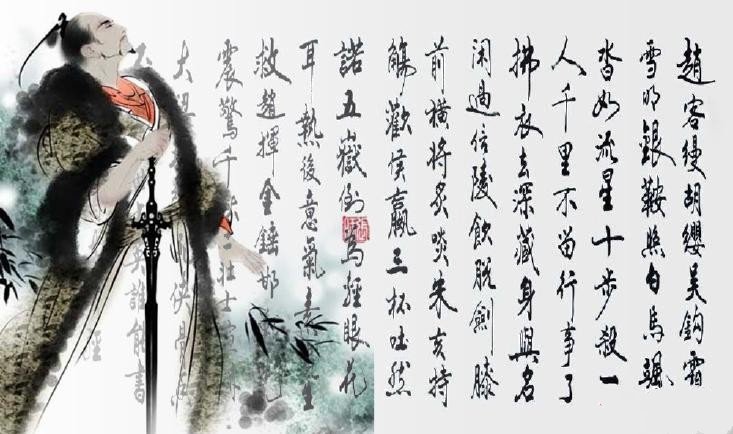 趙客縵胡纓吳鉤霜
雪明銀鞍照白馬颯
沓如流星十步殺一
人千里不留行事了
拂衣去深藏身與名
閑過信陵飲脫劍膝
前橫將炙啖朱亥持
觴勸侯嬴三杯吐然
諾五嶽倒為輕眼花
耳熱後意氣素生
救趙揮金錘邯
震驚千秋二壯士
大梁俠骨
不英誰能書
經